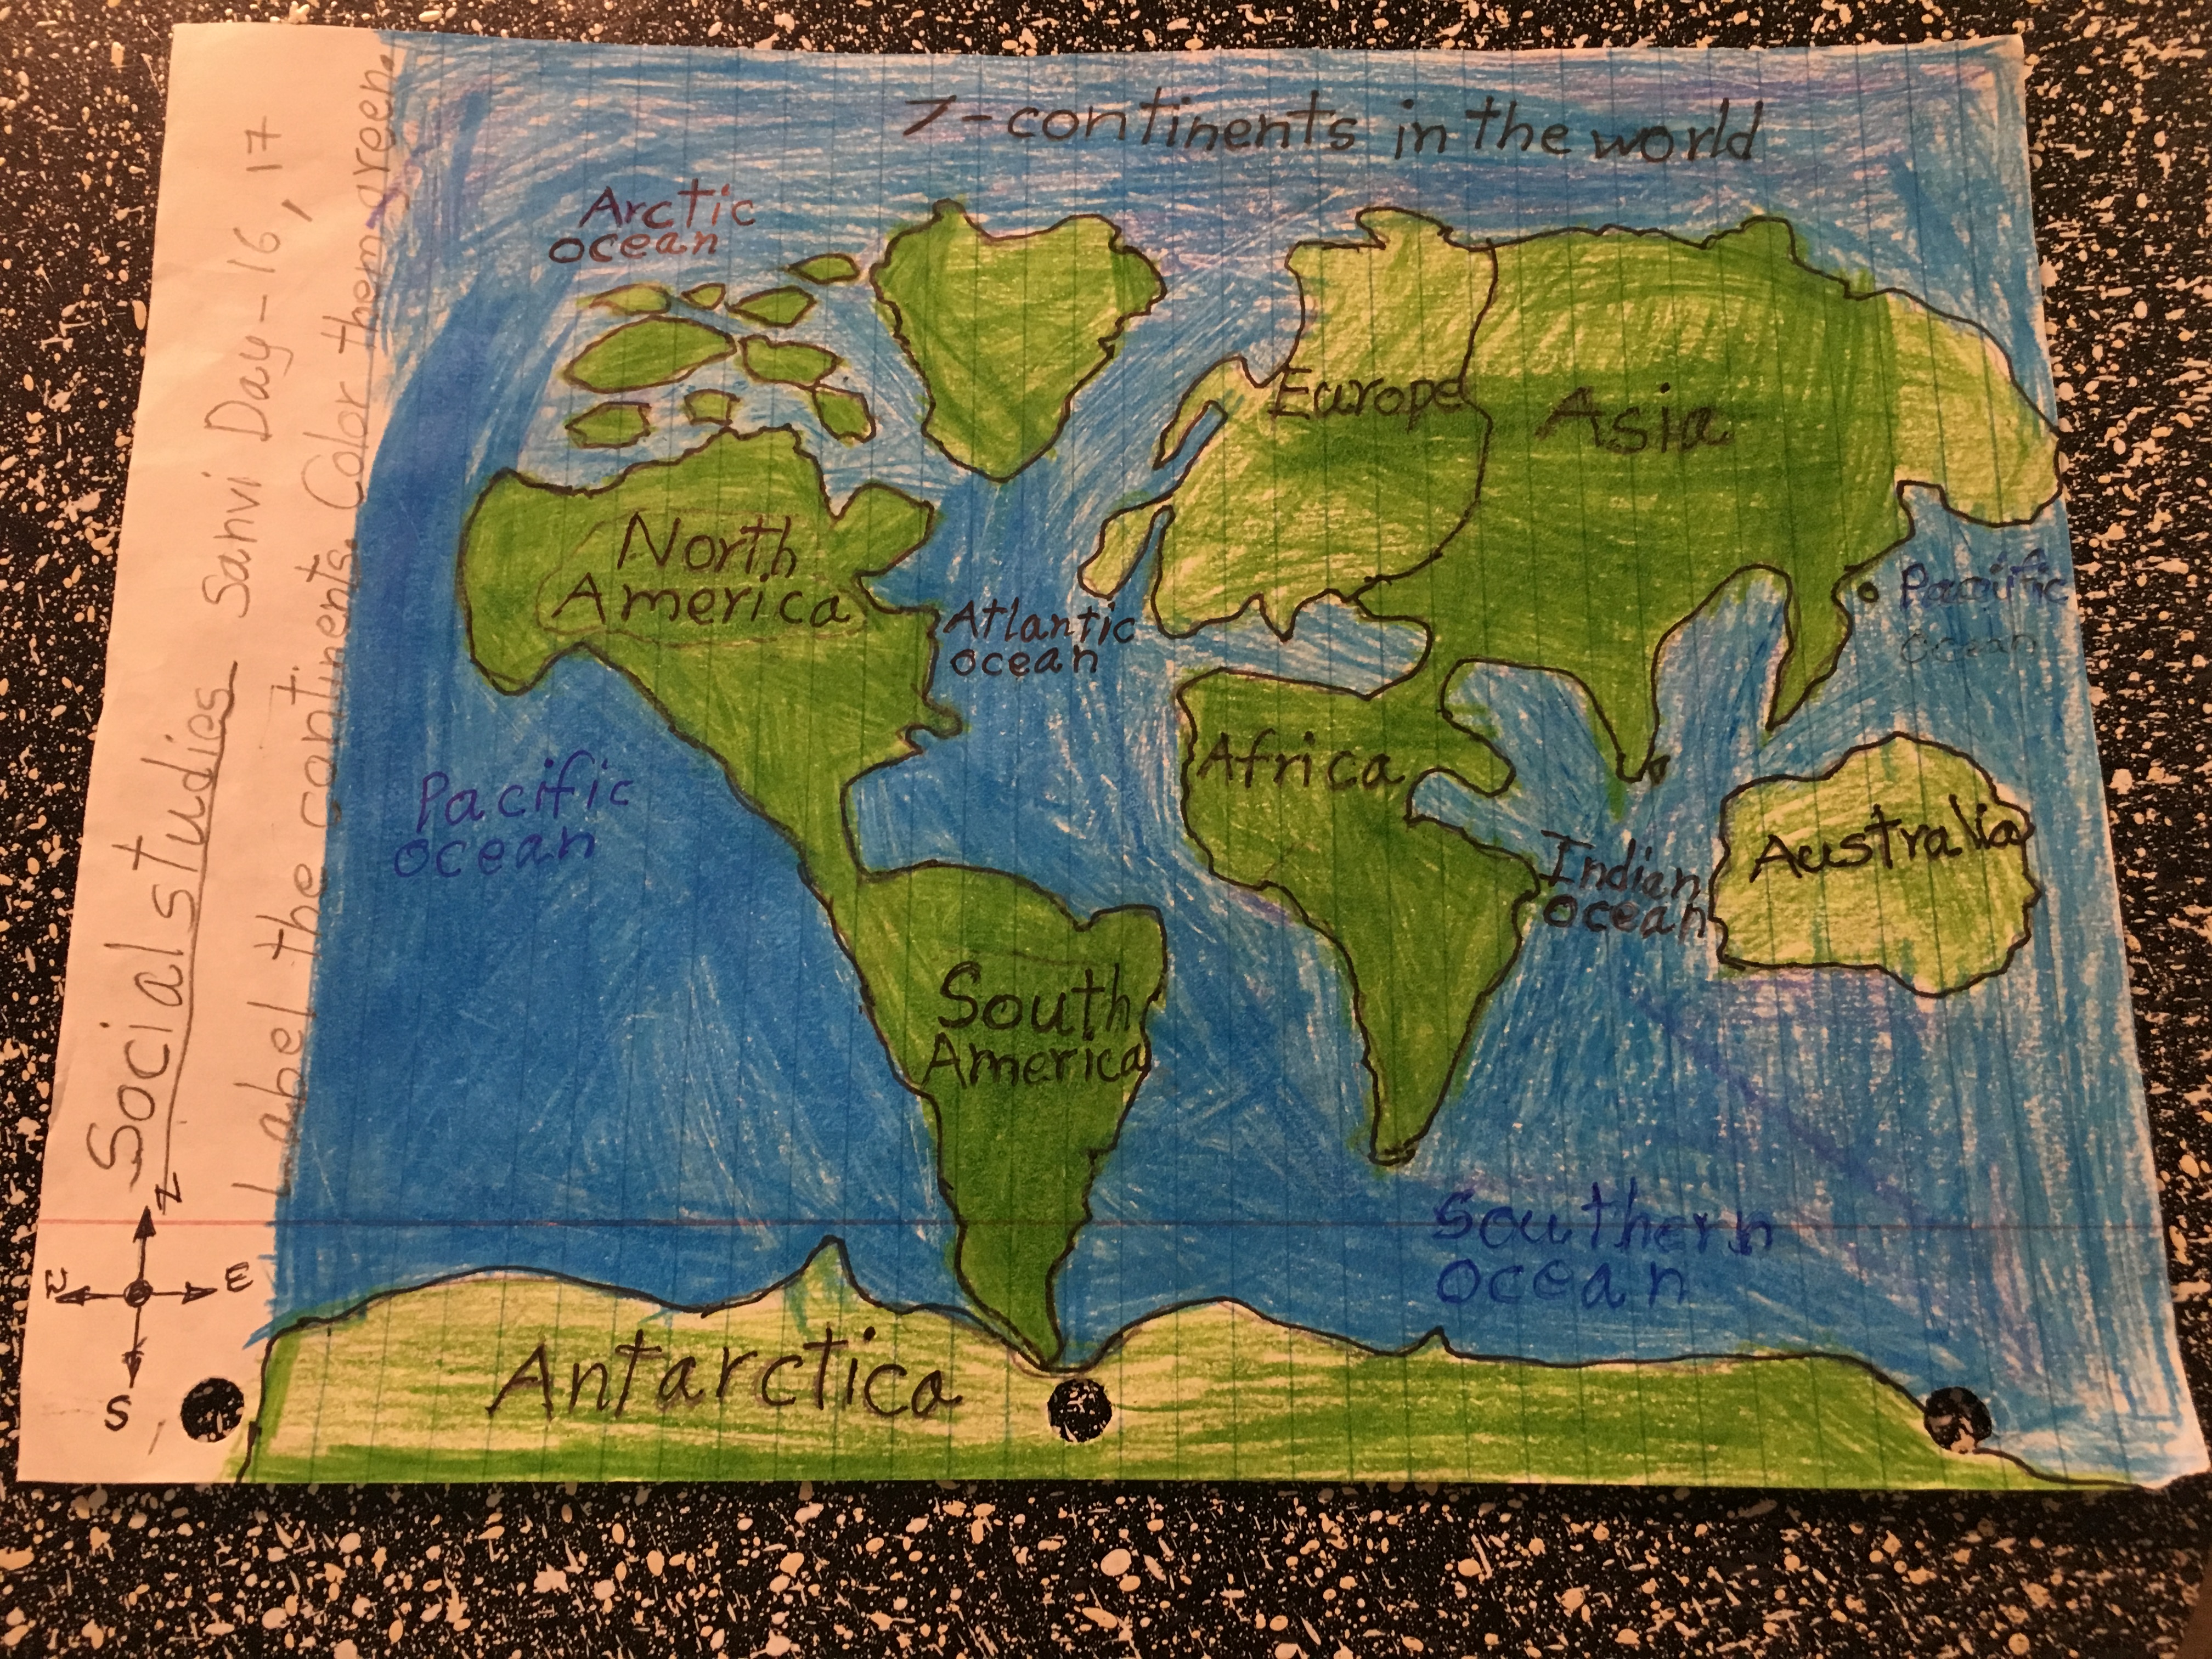 Social studies Sanvi Day - 16, 17
Label the continents. Color them green.
7-continents in the world
Arctic
ocean
Europe
Asia
North
America
Atlantic
ocean
Pacific
ocean
Africa
Pacific
ocean
Indian
ocean
Australia
South
America
Southern
ocean
Antarctica
N
W E
S